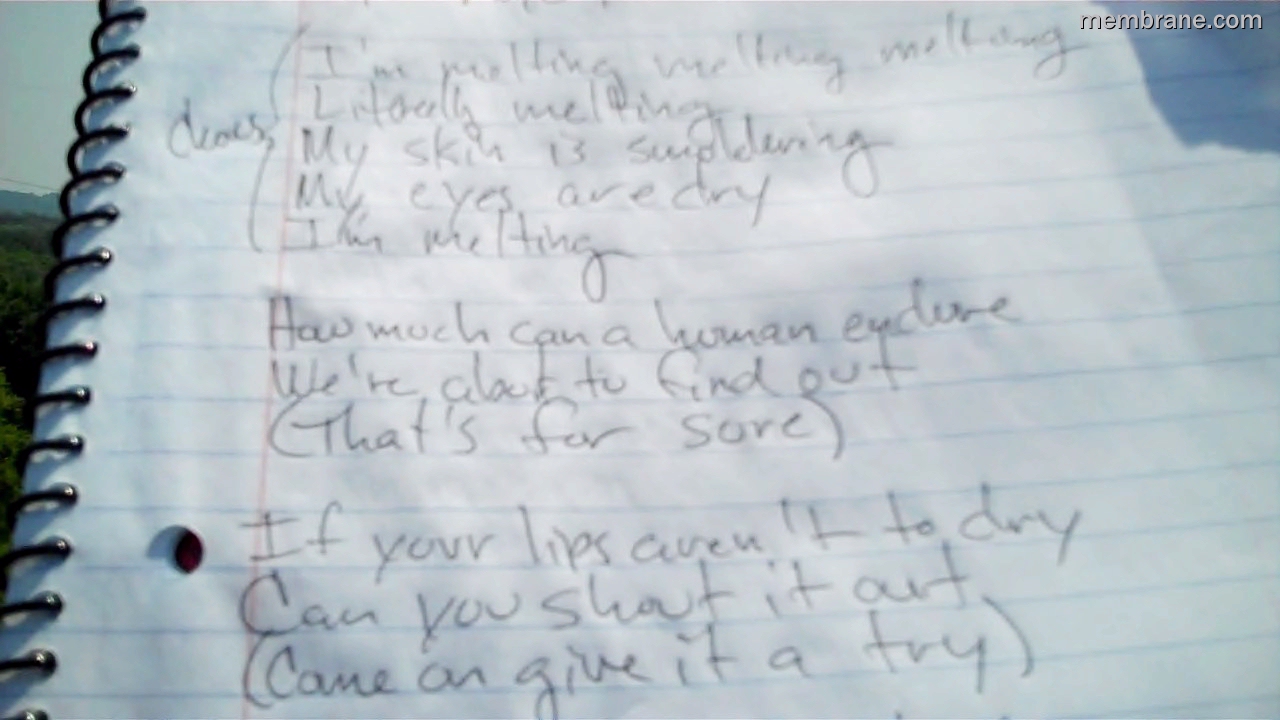 membrane.com
I'm melting melting melting
Literally melting
My skin is smoldering
My eyes are dry
I'm melting
How much can a human endure
We're about to find out
(That's for sure)
If your lips aren't to dry
Can you shout it out
(Come on give it a try)